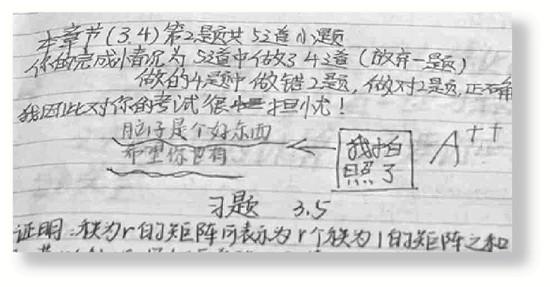 本章节(3.4)第2题共52道小题
你的完成情况为52道中做了4道(放弃一题)
做的4题中做错2题,做对2题,正不确
我因此对你的考试很担忧!
脑子是个好东西
希望你也有
我拍
照了
A++
习题 3.5
证明:秩为r的矩阵可表示为r个秩为1的矩阵之和